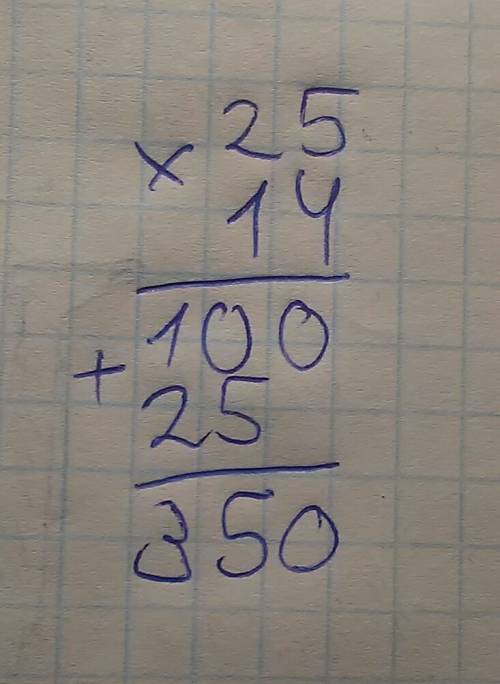 × 25
14
100
+
25
350